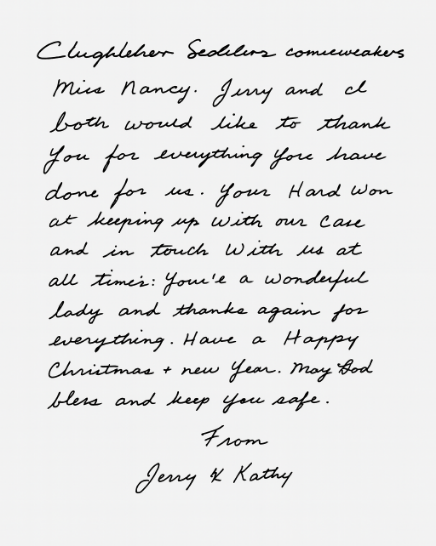 Clughleher Sedelers comieweakers
Miss Nancy. Jerry and cl
both would like to thank
You for everything Yore have
done for us. Your Hard Won
at keeping up With our Case
and in touch With us at
all time's: You'e a wonderful
lady and thanks again for
everything. Have a Happy
Christmas + new Year. May God
bless and keep you safe.
From
Jerry & Kathy